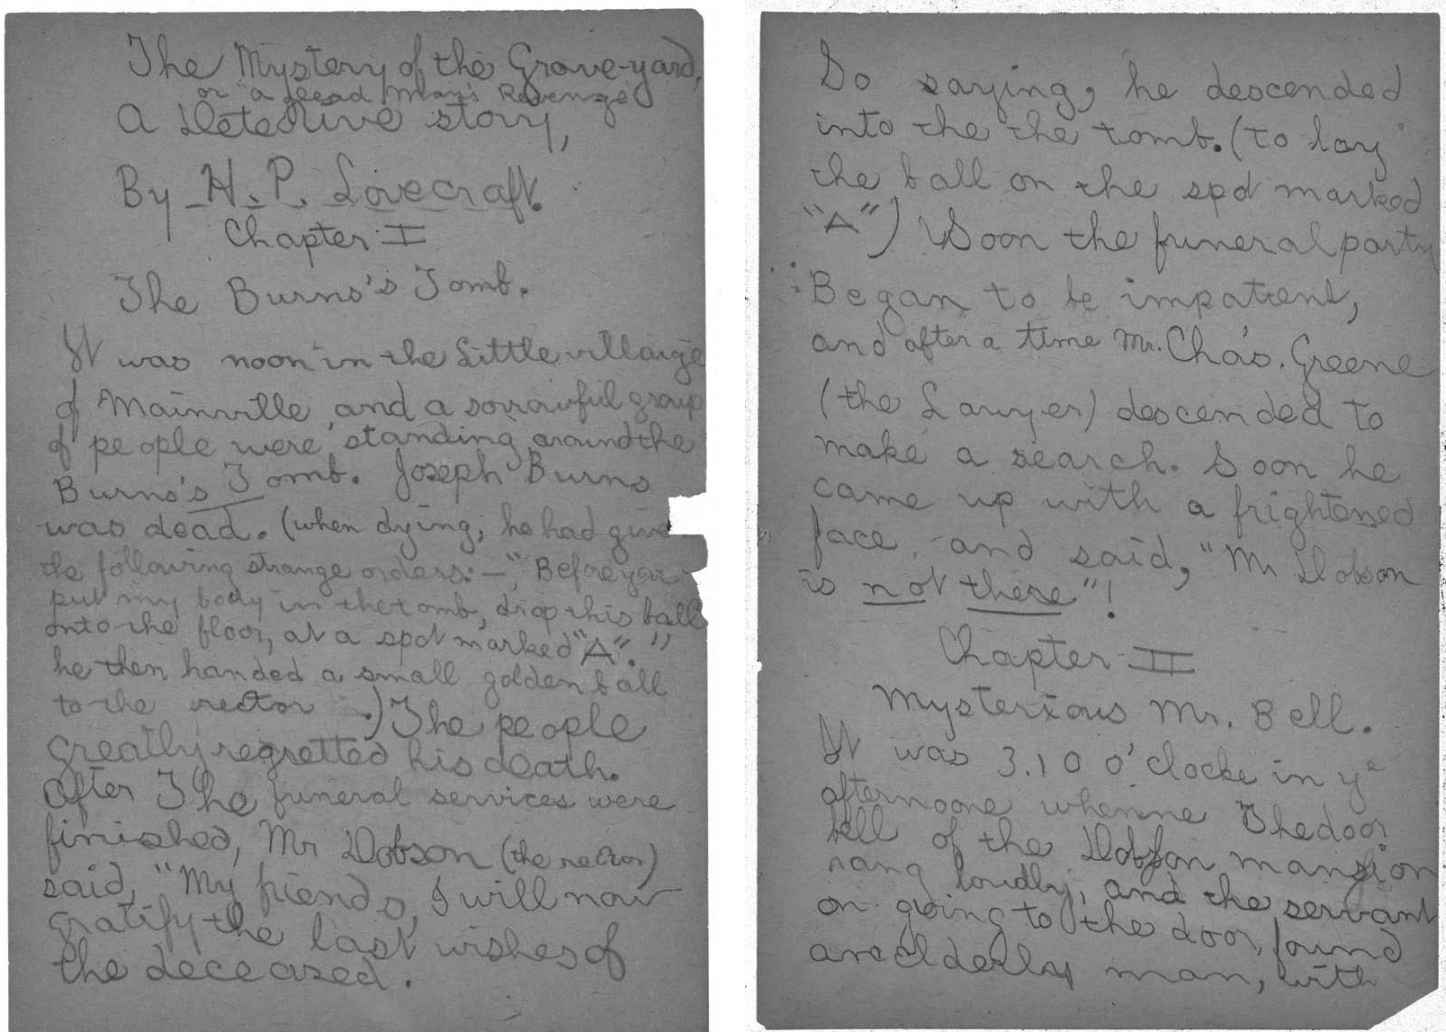 The Mystery of the Grave-yard,
or "a dead Man's Revenge"
A Detective story,
By H. P. Lovecraft.
Chapter I
The Burns's Tomb.
It was noon in the Little village
of Mainville, and a sorrowful group
of people were standing around the
Burns's Tomb. Joseph Burns
was dead. (when dying, he had given
the following strange orders:—", "Before you
put my body in the tomb, drop this ball
onto the floor, at a spot marked "A"."
he then handed a small golden ball
to the rector .) The people
greatly regretted his death.
After The funeral services were
finished, Mr Dobson (the rector)
said, "My friends, I will now
gratify the last wishes of
the deceased.
So saying, he descended
into the the tomb. (to lay
the ball on the spot marked
"A") Soon the funeral party
Began to be impatient,
and after a time Mr. Cha's. Greene
(the Lawyer) descended to
make a search. Soon he
came up with a frightened
face, and said, "Mr Dobson
is not there"!
Chapter II
Mysterious Mr. Bell.
It was 3.10 o'clocke in ye
afternoone whenne The door
bell of the Dobson mansion
rang loudly, and the servant
on going to the door, found
an elderly man, with